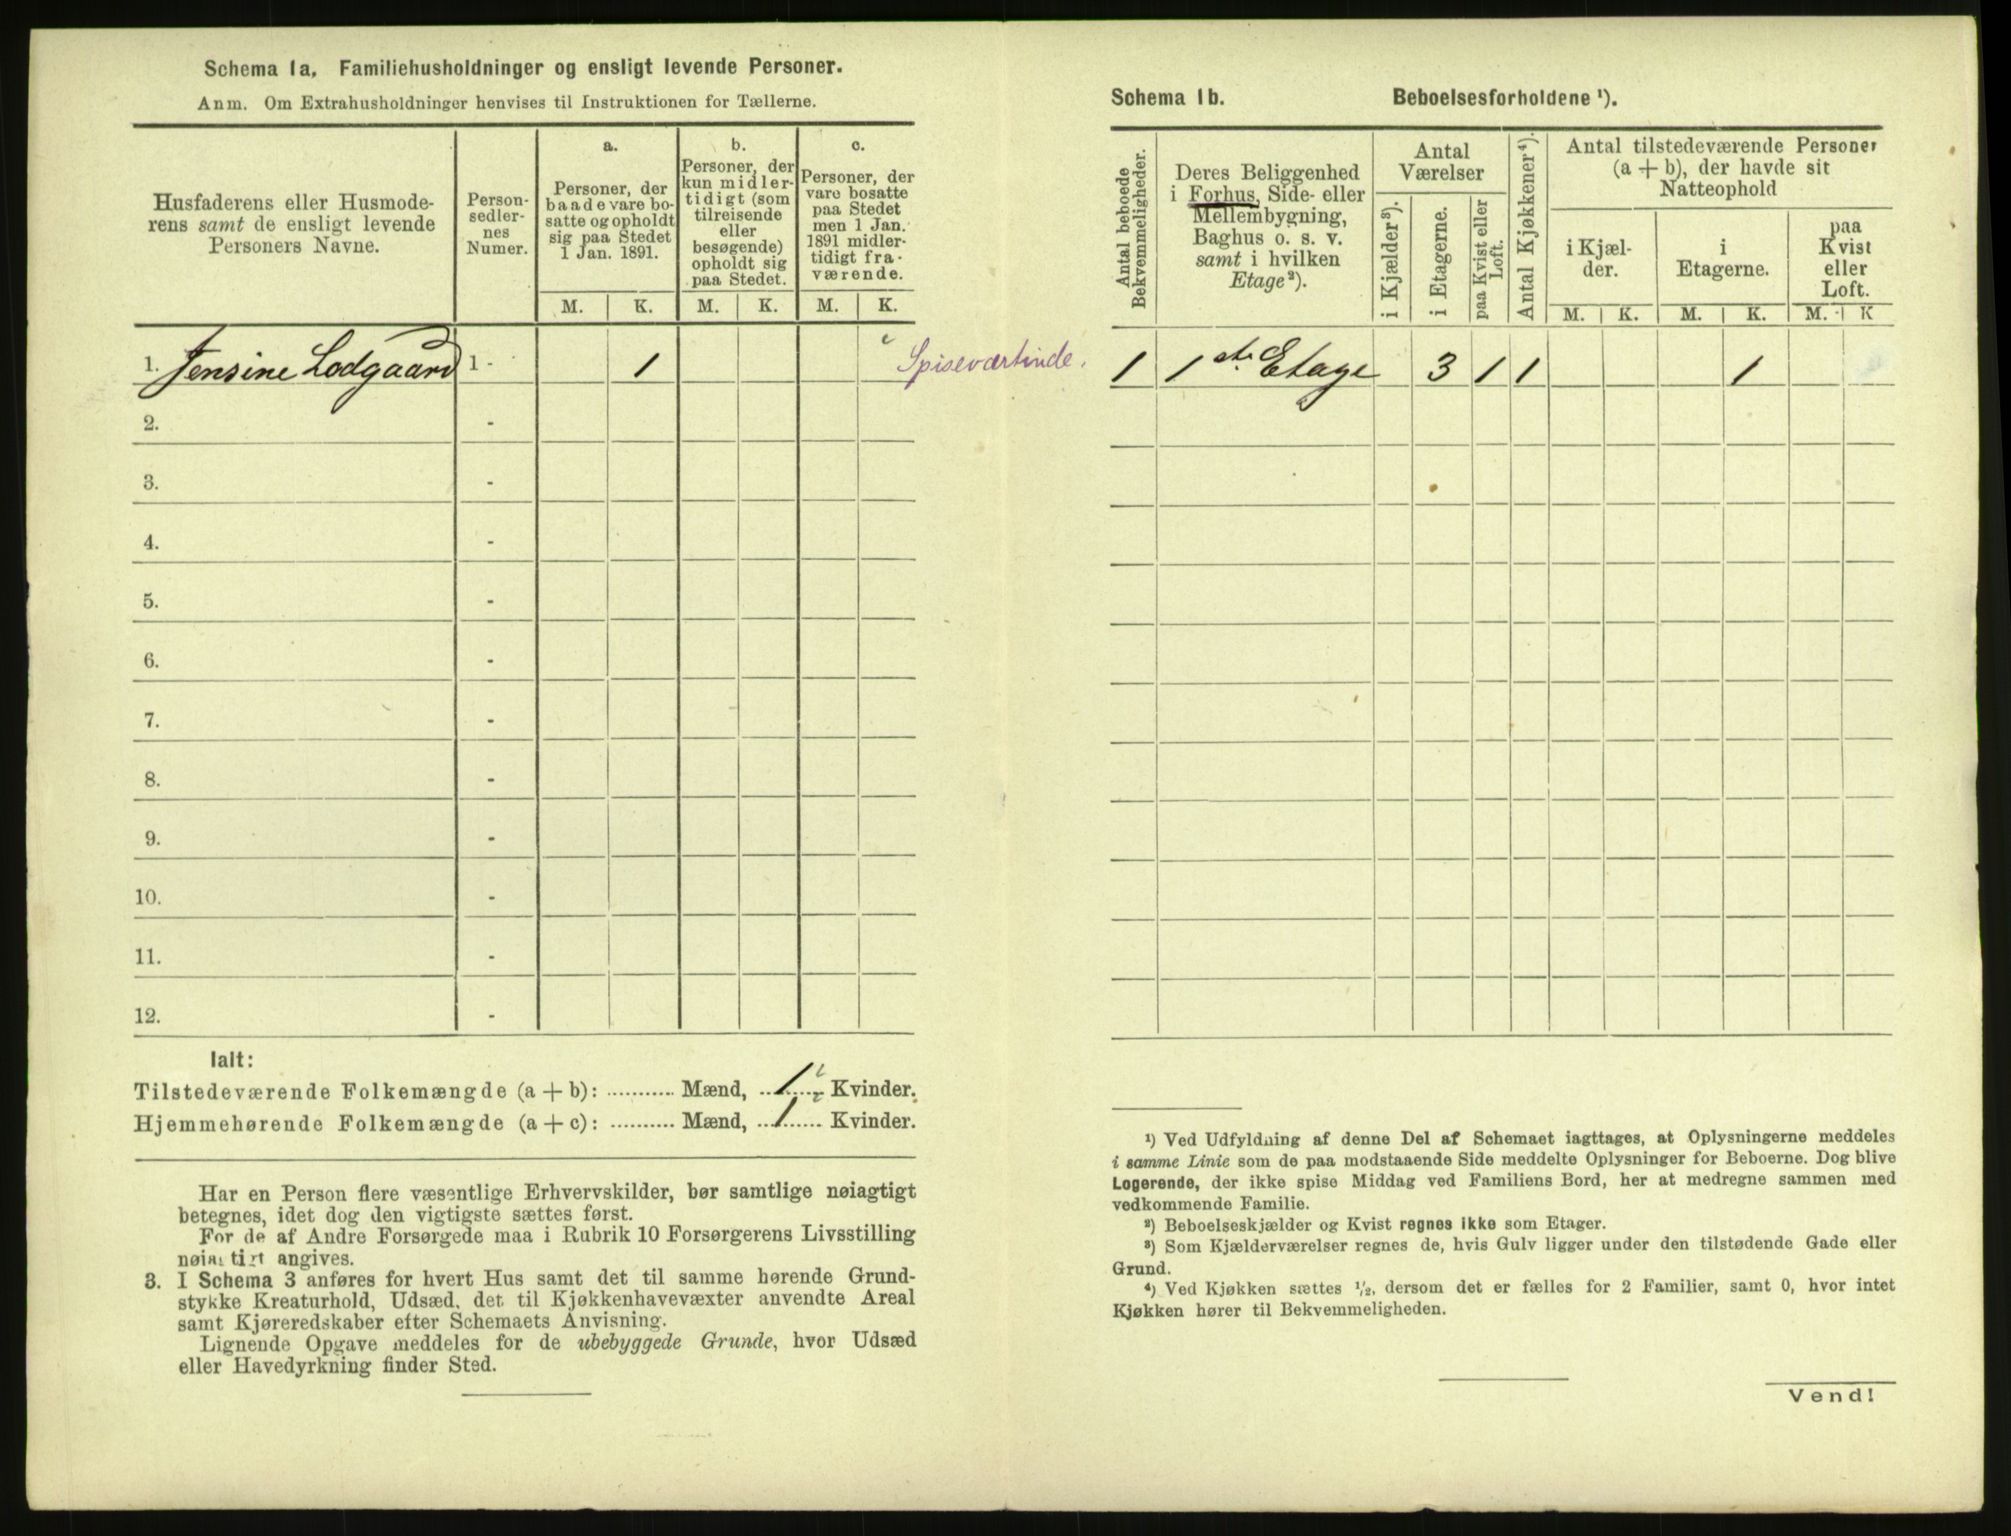 Schema 1a, Familiehusholdninger og ensligt levende Personer.
Anm. Om Extrahusholdninger henvises til Instruktionen for Tællerne.
Husfaderens eller Husmode-
rens samt de ensligt levende
Personers Navne.
Person-
sedler-
nes
Numer.
a.
Personer, der
baade vare bo-
satte og opholdt
sig paa Stedet
1 Jan. 1891.
b.
Personer, der
kun midler-
tidigt (som
tilreisende
eller
besøgende)
opholdt sig
paa Stedet.
c.
Personer, der
vare bosatte
paa Stedet
men 1 Jan.
1891 midler-
tidigt fra-
værende.
M. K. M. K. M. K.
1. Jensine Lodgaard 1 - 1 Spiseværtinde.
2. -
3. -
4. -
5. -
6. -
7. -
8. -
9. -
10. -
11. -
12. -
Ialt:
Tilstedeværende Folkemængde (a + b): .......... Mænd, 1 Kvinder.
Hjemmehørende Folkemængde (a + c): .......... Mænd, 1 Kvinder.
Har en Person flere væsentlige Erhvervskilder, bør samtlige nøiagtigt
betegnes, idet dog den vigtigste sættes først.
For de af Andre Forsørgede maa i Rubrik 10 Forsørgerens Livsstilling
nøiagtigt angives.
3. I Schema 3 anføres for hvert Hus samt det til samme hørende Grund-
stykke Kreaturhold, Udsæd, det til Kjøkkenhavevæxter anvendte Areal
samt Kjøreredskaber efter Schemaets Anvisning.
Lignende Opgave meddeles for de ubebyggede Grunde, hvor Udsæd
eller Havedyrkning finder Sted.
Schema 1b. Beboelsesforholdene ¹).
Antal beboede
Bekvemmeligheder.
Deres Beliggenhed
i Forhus, Side- eller
Mellembygning,
Baghus o. s. v.
samt i hvilken
Etage²).
Antal
Værelser
i Kjælder³).
i Etagerne.
paa Kvist eller
Loft.
Antal Kjøkkener⁴).
Antal tilstedeværende Personer
(a + b), der havde sit
Natteophold
i Kjæl-
der.
i
Etagerne.
paa
Kvist
eller
Loft.
M. K. M. K. M. K
1 1ste Etage 3 1 1 1
¹) Ved Udfyldning af denne Del af Schemaet iagttages, at Oplysningerne meddeles
i samme Linie som de paa modstaaende Side meddelte Oplysninger for Beboerne. Dog blive
Logerende, der ikke spise Middag ved Familiens Bord, her at medregne sammen med
vedkommende Familie.
²) Beboelseskjælder og Kvist regnes ikke som Etager.
³) Som Kjælderværelser regnes de, hvis Gulv ligger under den tilstødende Gade eller
Grund.
⁴) Ved Kjøkken sættes ½, dersom det er fælles for 2 Familier, samt 0, hvor intet
Kjøkken hører til Bekvemmeligheden.
Vend!